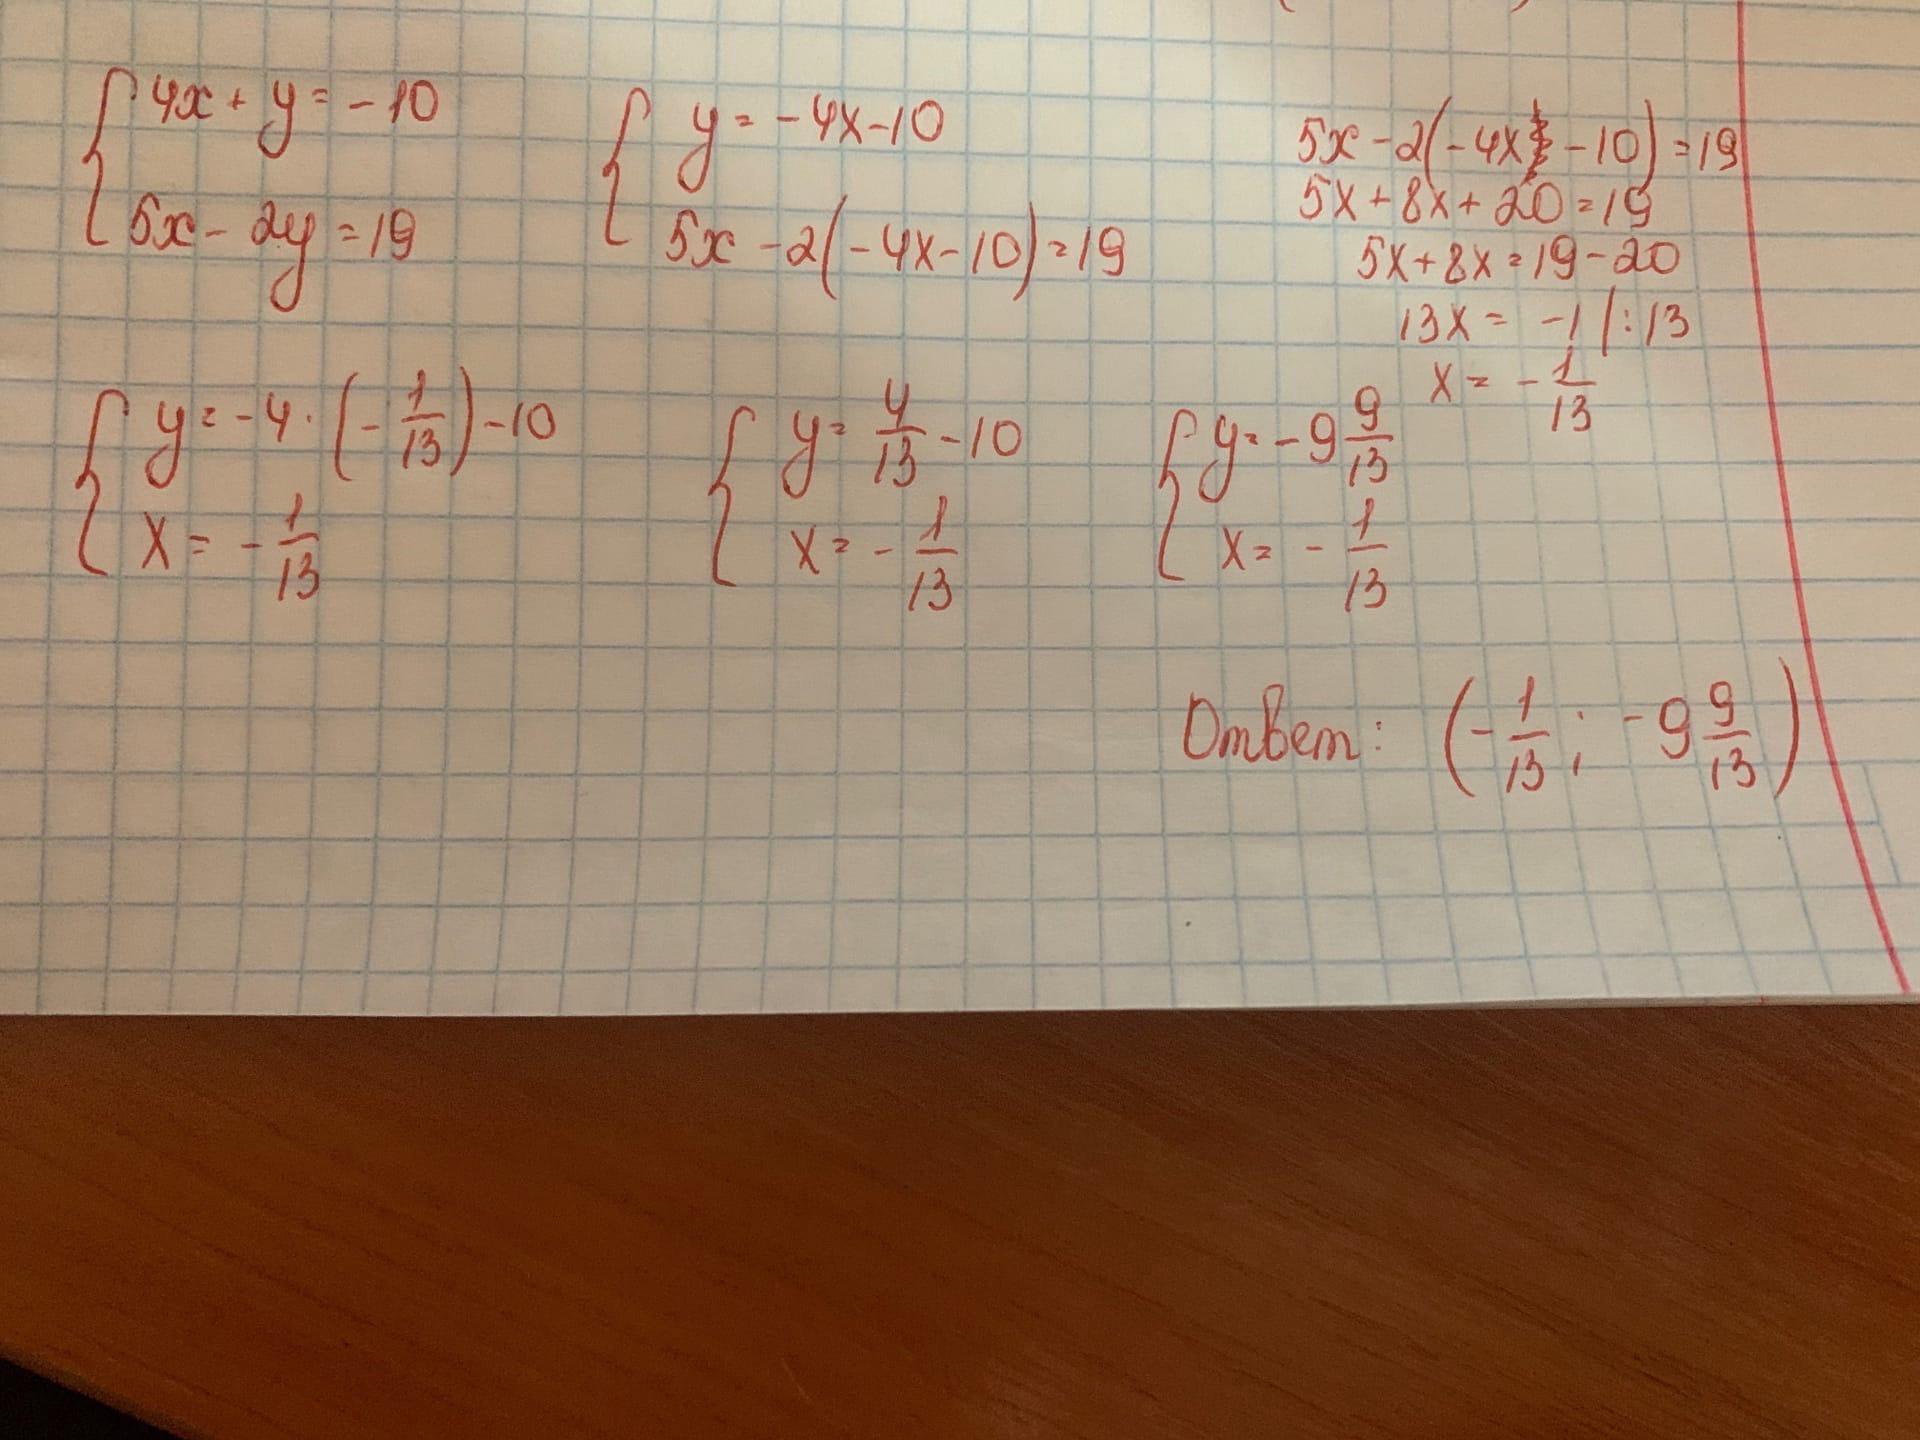 { 4x + y = -10
5x - 2y = 19
{ y = -4x - 10
5x - 2(-4x - 10) = 19
5x - 2(-4x - 10) = 19
5x + 8x + 20 = 19
5x + 8x = 19 - 20
13x = -1 | : 13
x = - 1/13
{ y = -4 · (- 1/13) - 10
x = - 1/13
{ y = 4/13 - 10
x = - 1/13
{ y = -9 9/13
x = - 1/13
Ответ: (- 1/13 ; -9 9/13)